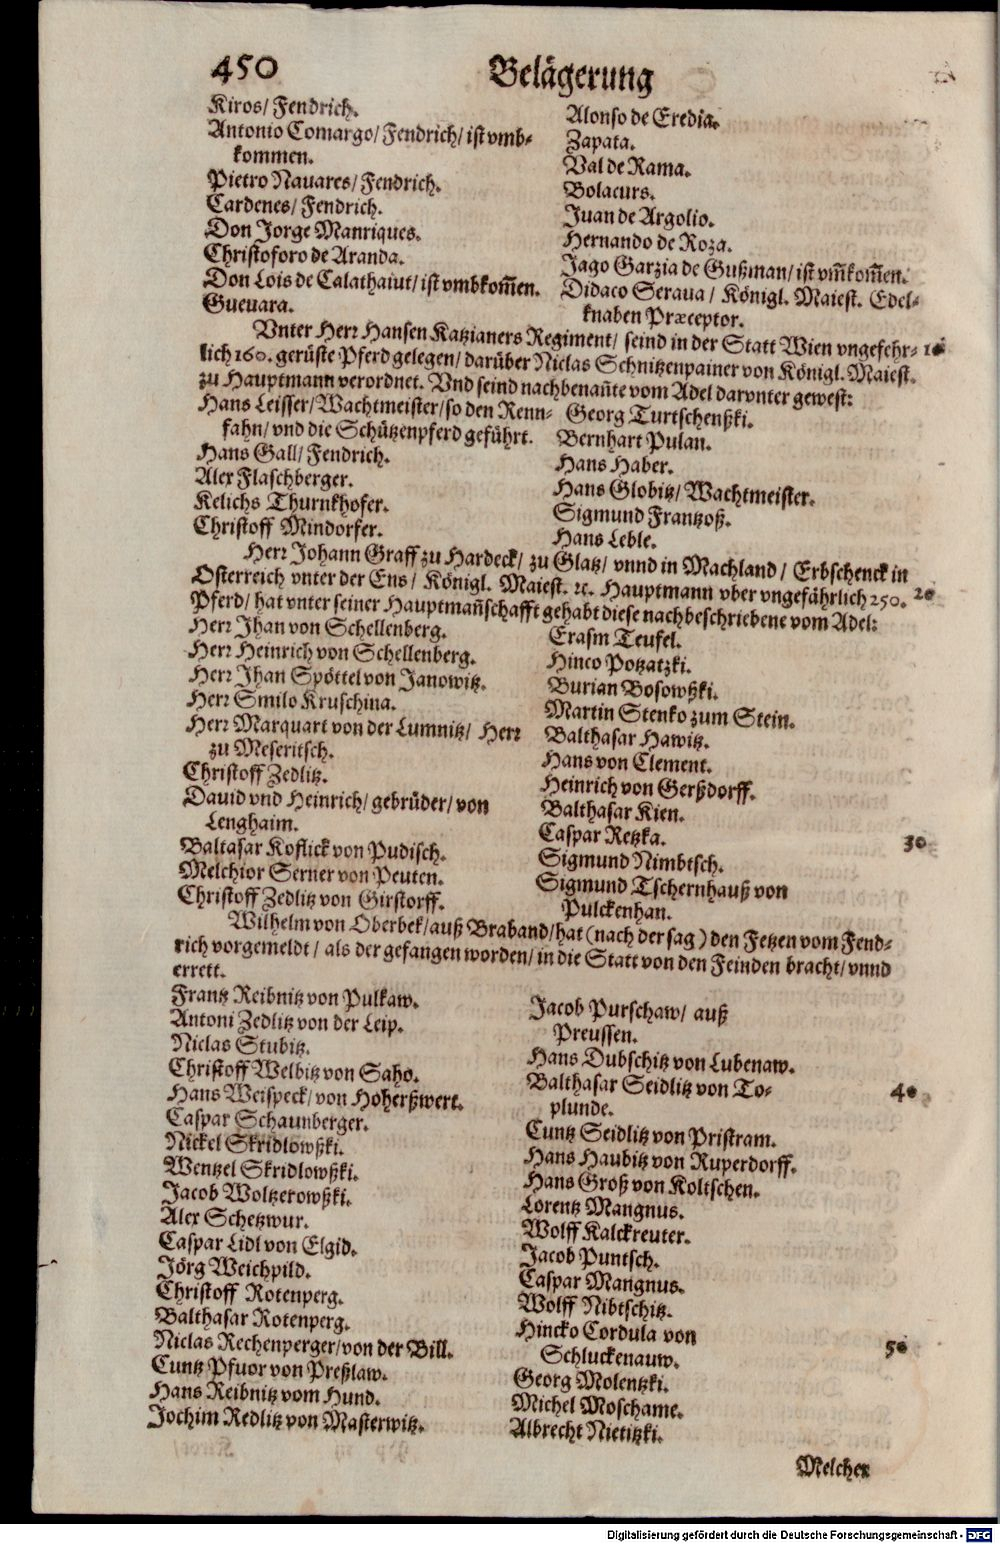 450
Belägerung
Kiros/ Fendrich.
Antonio Comargo/ Fendrich/ ist vmb-
kommen.
Pietro Nauares/ Fendrich.
Cardenes/ Fendrich.
Don Jorge Manriques.
Christoforo de Aranda.
Don Lois de Calathaiut/ ist vmbkom̃en.
Gueuara.
Alonso de Eredia.
Zapata.
Val de Rama.
Bolacurs.
Juan de Argolio.
Hernando de Roza.
Jago Garzia de Gußman/ ist vm̃kom̃en.
DidacoSeraua/ Königl. Maiest. Edel-
knaben Præceptor.
Vnter Herr Hansen Katzianers Regiment/ seind in der Statt Wien vngefehr-
lich 160. gerüste Pferd gelegen/ darüber Niclas Schnitzenpainer von Königl. Maiest.
zu Hauptmann verordnet. Vnd seind nachbenañte vom Adel darvnter gewest:
Hans Leisser/ Wachtmeister/ so den Renn-
fahn/ vnd die Schützenpferd geführt.
Hans Gall/ Fendrich.
Alex Flaschberger.
Kelichs Thurnkhofer.
Christoff Mindorfer.
Georg Turtschenßki.
Bernhart Pulan.
Hans Haber.
Hans Globitz/ Wachtmeister.
Sigmund Frantzoß.
Hans Leble.
Herr Johann Graff zu Hardeck/ zu Glatz/ vnnd in Machland/ Erbschenck in
Osterreich vnter der Ens/ Königl. Maiest. ꝛc. Hauptmann vber vngefährlich 250. 20
Pferd/ hat vnter seiner Hauptmañschafft gehabt diese nachbeschriebene vom Adel:
Herr Jhan von Schellenberg.
Herr Heinrich von Schellenberg.
Herr Jhan Spöttel von Janowitz.
Herr Smilo Kruschina.
Herr Marquart von der Lumnitz/ Herr
zu Meseritsch.
Christoff Zedlitz.
Dauid vnd Heinrich/ gebrüder/ von
Lenghaim.
Baltasar Koflick von Pudisch.
Melchior Serner von Peuten.
Christoff Zedlitz von Girstorff.
Erasm Teufel.
Hinco Potzatzki.
Burian Bosowßki.
Martin Stenko zum Stein.
Balthasar Hawitz.
Hans von Clement.
Heinrich von Gerßdorff.
Balthasar Kien.
Caspar Retzka.
30
Sigmund Nimbtsch.
Sigmund Tschernhauß von
Pulckenhan.
Wilhelm von Oberbek/ auß Braband/ hat (nach der sag) den Fetzen vom Fend-
rich vorgemeldt/ als der gefangen worden/ in die Statt von den Feinden bracht/ vnnd
errett.
Frantz Reibnitz von Pulkaw.
Antoni Zedlitz von der Leip.
Niclas Stubitz.
Christoff Welbitz von Saho.
Hans Weispeck/ von Hoherßwert.
Caspar Schaunberger.
Nickel Skridlowßki.
Wentzel Skridlowßki.
Jacob Woltzerowßki.
Alex Schetzwur.
Caspar Lidl von Elgid.
Jörg Weichpild.
Christoff Rotenperg.
Balthasar Rotenperg.
Niclas Rechenperger/ von der Bill.
Cuntz Pfuor von Preßlaw.
Hans Reibnitz vom Hund.
Jochim Redlitz von Masterwitz.
Jacob Purschaw/ auß
Preussen.
Hans Dubschitz von Lubenaw.
Balthasar Seidlitz von To-
plunde.
40
Cuntz Seidlitz von Pristram.
Hans Haubitz von Ruperdorff.
Hans Groß von Koltschen.
Lorentz Mangnus.
Wolff Kalckreuter.
Jacob Puntsch.
Caspar Mangnus.
Wolff Nibtschitz.
Hincko Cordula von
Schluckenauw.
50
Georg Molentzki.
Michel Moschame.
Albrecht Nietitzki.
Melcher
Digitalisierung gefördert durch die Deutsche Forschungsgemeinschaft - DFG